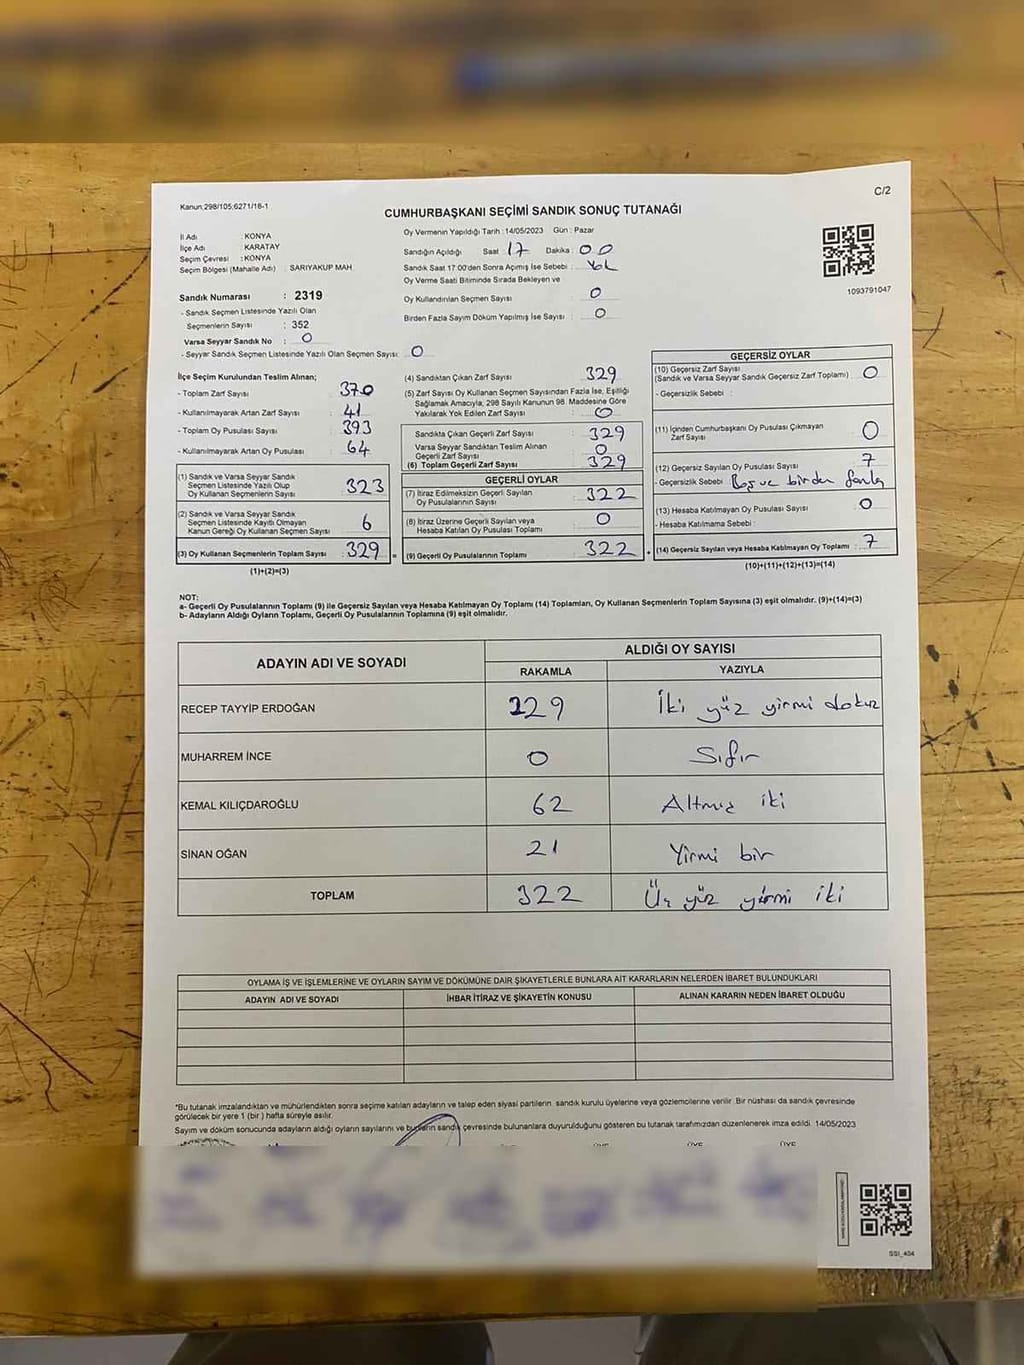 C/2
Kanun.298/105;6271/18-1
CUMHURBAŞKANI SEÇİMİ SANDIK SONUÇ TUTANAĞI
İl Adı : KONYA
İlçe Adı : KARATAY
Seçim Çevresi : KONYA
Seçim Bölgesi (Mahalle Adı) : SARIYAKUP MAH.
Sandık Numarası : 2319
- Sandık Seçmen Listesinde Yazılı Olan
Seçmenlerin Sayısı : 352
Varsa Seyyar Sandık No : 0
- Seyyar Sandık Seçmen Listesinde Yazılı Olan Seçmen Sayısı: 0
Oy Vermenin Yapıldığı Tarih : 14/05/2023 Gün : Pazar
Sandığın Açıldığı Saat 17 Dakika : 00
Sandık Saat 17:00'den Sonra Açımış İse Sebebi :
Oy Verme Saati Bitiminde Sırada Bekleyen ve
Oy Kullandırılan Seçmen Sayısı : 0
Birden Fazla Sayım Döküm Yapılmış İse Sayısı : 0
1093791047
İlçe Seçim Kurulundan Teslim Alınan;
- Toplam Zarf Sayısı : 370
- Kullanılmayarak Artan Zarf Sayısı : 41
- Toplam Oy Pusulası Sayısı : 393
- Kullanılmayarak Artan Oy Pusulası : 64
(1) Sandık ve Varsa Seyyar Sandık
Seçmen Listesinde Yazılı Olup
Oy Kullanan Seçmenlerin Sayısı : 323
(2) Sandık ve Varsa Seyyar Sandık
Seçmen Listesinde Kayıtlı Olmayan
Kanun Gereği Oy Kullanan Seçmen Sayısı : 6
(3) Oy Kullanan Seçmenlerin Toplam Sayısı : 329 =
(1)+(2)=(3)
(4) Sandıktan Çıkan Zarf Sayısı : 329
(5) Zarf Sayısı Oy Kullanan Seçmen Sayısından Fazla İse, Eşitliği
Sağlamak Amacıyla, 298 Sayılı Kanunun 98. Maddesine Göre
Yakılarak Yok Edilen Zarf Sayısı : 0
Sandıkta Çıkan Geçerli Zarf Sayısı : 329
Varsa Seyyar Sandıktan Teslim Alınan
Geçerli Zarf Sayısı : 0
(6) Toplam Geçerli Zarf Sayısı : 329
GEÇERLİ OYLAR
(7) İtiraz Edilmeksizin Geçerli Sayılan
Oy Pusulalarının Sayısı : 322
(8) İtiraz Üzerine Geçerli Sayılan veya
Hesaba Katılan Oy Pusulası Toplamı : 0
(9) Geçerli Oy Pusulalarının Toplamı : 322 +
GEÇERSİZ OYLAR
(10) Geçersiz Zarf Sayısı
(Sandık ve Varsa Seyyar Sandık Geçersiz Zarf Toplamı) : 0
- Geçersizlik Sebebi :
(11) İçinden Cumhurbaşkanı Oy Pusulası Çıkmayan
Zarf Sayısı : 0
(12) Geçersiz Sayılan Oy Pusulası Sayısı : 7
- Geçersizlik Sebebi : Boş ve birden fazla
(13) Hesaba Katılmayan Oy Pusulası Sayısı : 0
- Hesaba Katılmama Sebebi :
(14) Geçersiz Sayılan veya Hesaba Katılmayan Oy Toplamı : 7
(10)+(11)+(12)+(13)=(14)
NOT:
a- Geçerli Oy Pusulalarının Toplamı (9) ile Geçersiz Sayılan veya Hesaba Katılmayan Oy Toplamı (14) Toplamları, Oy Kullanan Seçmenlerin Toplam Sayısına (3) eşit olmalıdır. (9)+(14)=(3)
b- Adayların Aldığı Oyların Toplamı, Geçerli Oy Pusulalarının Toplamına (9) eşit olmalıdır.
ADAYIN ADI VE SOYADI
ALDIĞI OY SAYISI
RAKAMLA YAZIYLA
RECEP TAYYİP ERDOĞAN 229 İki yüz yirmi dokuz
MUHARREM İNCE 0 Sıfır
KEMAL KILIÇDAROĞLU 62 Altmış iki
SİNAN OĞAN 21 Yirmi bir
TOPLAM 322 Üç yüz yirmi iki
OYLAMA İŞ VE İŞLEMLERİNE VE OYLARIN SAYIM VE DÖKÜMÜNE DAİR ŞİKAYETLERLE BUNLARA AİT KARARLARIN NELERDEN İBARET BULUNDUKLARI
ADAYIN ADI VE SOYADI İHBAR İTİRAZ VE ŞİKAYETİN KONUSU ALINAN KARARIN NEDEN İBARET OLDUĞU
*Bu tutanak imzalandıktan ve mühürlendikten sonra seçime katılan adayların ve talep eden siyasi partilerin sandık kurulu üyelerine veya gözlemcilerine verilir. Bir nüshası da sandık çevresinde
görülecek bir yere 1 (bir) hafta süreyle asılır.
Sayım ve döküm sonucunda adayların aldığı oyların sayılarını ve bunların sandık çevresinde bulunanlara duyurulduğunu gösteren bu tutanak tarafımızdan düzenlenerek imza edildi. 14/05/2023
ÜYE ÜYE ÜYE
SSI_404